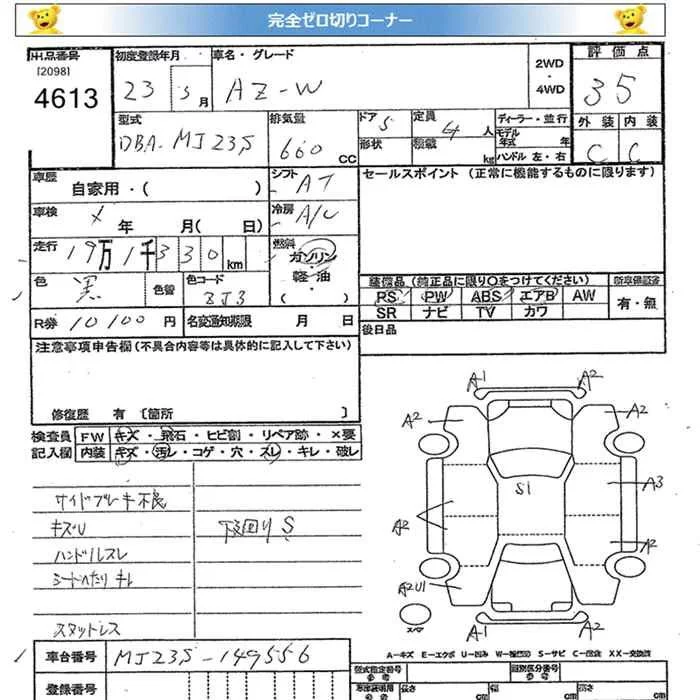 完全ゼロ切りコーナー
出品番号
[2098]
4613
初度登録年月
23 5月
車名・グレード
AZ-W
2WD
・
4WD
評価点
35
外装 内装
C C
型式
DBA-MJ23S
排気量
660 CC
ドア 5
形状
定員 4 人
積載 kg
ディーラー・並行
モデル年式 年
ハンドル 左・右
車歴
自家用・( )
シフト
AT
車検
年 月( 日)
冷房
A/C
走行
19万1千330 km
燃料
ガソリン・
軽・油
( )
色
黒
色替
色コード
ZJ3
R券 10100 円
名変通知期限 月 日
セールスポイント (正常に機能するものに限ります)
装備品 (純正品に限り○をつけてください)
新車保証書
PS PW ABS エアB AW
SR ナビ TV カワ
有・無
後日品
注意事項申告欄 (不具合内容等は具体的に記入して下さい)
修復歴 有 〔箇所 〕
検査員
記入欄
FW キズ・飛石・ヒビ割・リペア跡・×要
内装 キズ・汚レ・コゲ・穴・スレ・キレ・破レ
サイドブレーキ不良
キズU
下回りS
ハンドルスレ
シートへたり キレ
スタッドレス
A1 A2
A2 A2
S1
A3
A2
A2
A2U1
スペア
A1 A2
A-キズ E-エクボ U-凹み W-補修跡 S-サビ C-腐蝕 XX-交換済
車台番号 MJ23S-149556
登録番号
型式指定番号
参考
類別区分番号
参考
長さ cm
幅 cm
高さ cm